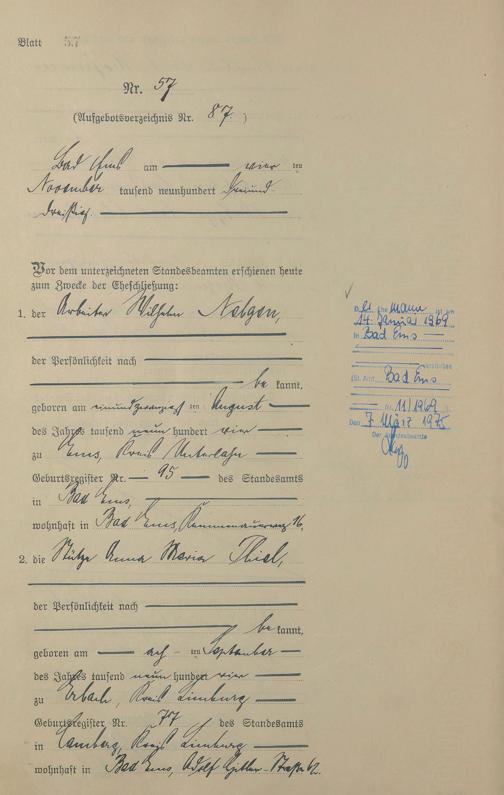 Blatt 57
Nr. 57
(Aufgebotsverzeichnis Nr. 87.)
Bad Ems am vier ten
November tausend neunhundert dreiund
dreißig.
Vor dem unterzeichneten Standesbeamten erschienen heute
zum Zwecke der Eheschließung:
1. der Arbeiter Wilhelm
der Persönlichkeit nach
be kannt,
geboren am einundzwanzigs ten August
des Jahres tausend neun hundert vier
zu Ems, Kreis Unterlahn
Geburtsregister Nr. 95 des Standesamts
in Bad Ems,
wohnhaft in Bad Ems, 16,
2. die Stütze Anna Maria Thiel,
der Persönlichkeit nach
be kannt,
geboren am ach ten September
des Jahres tausend neun hundert vier
zu Erbach, Kreis Limburg
Geburtsregister Nr. 77 des Standesamts
in Camberg, Kreis Limburg
wohnhaft in Bad Ems, Adolf Hitler-Straße
Ehe mann ist am
14. Januar 1969
in Bad Ems
verstorben
(St. Amt Bad Ems
Nr. 11/1969
Den 7. März 1975
Der Standesbeamte